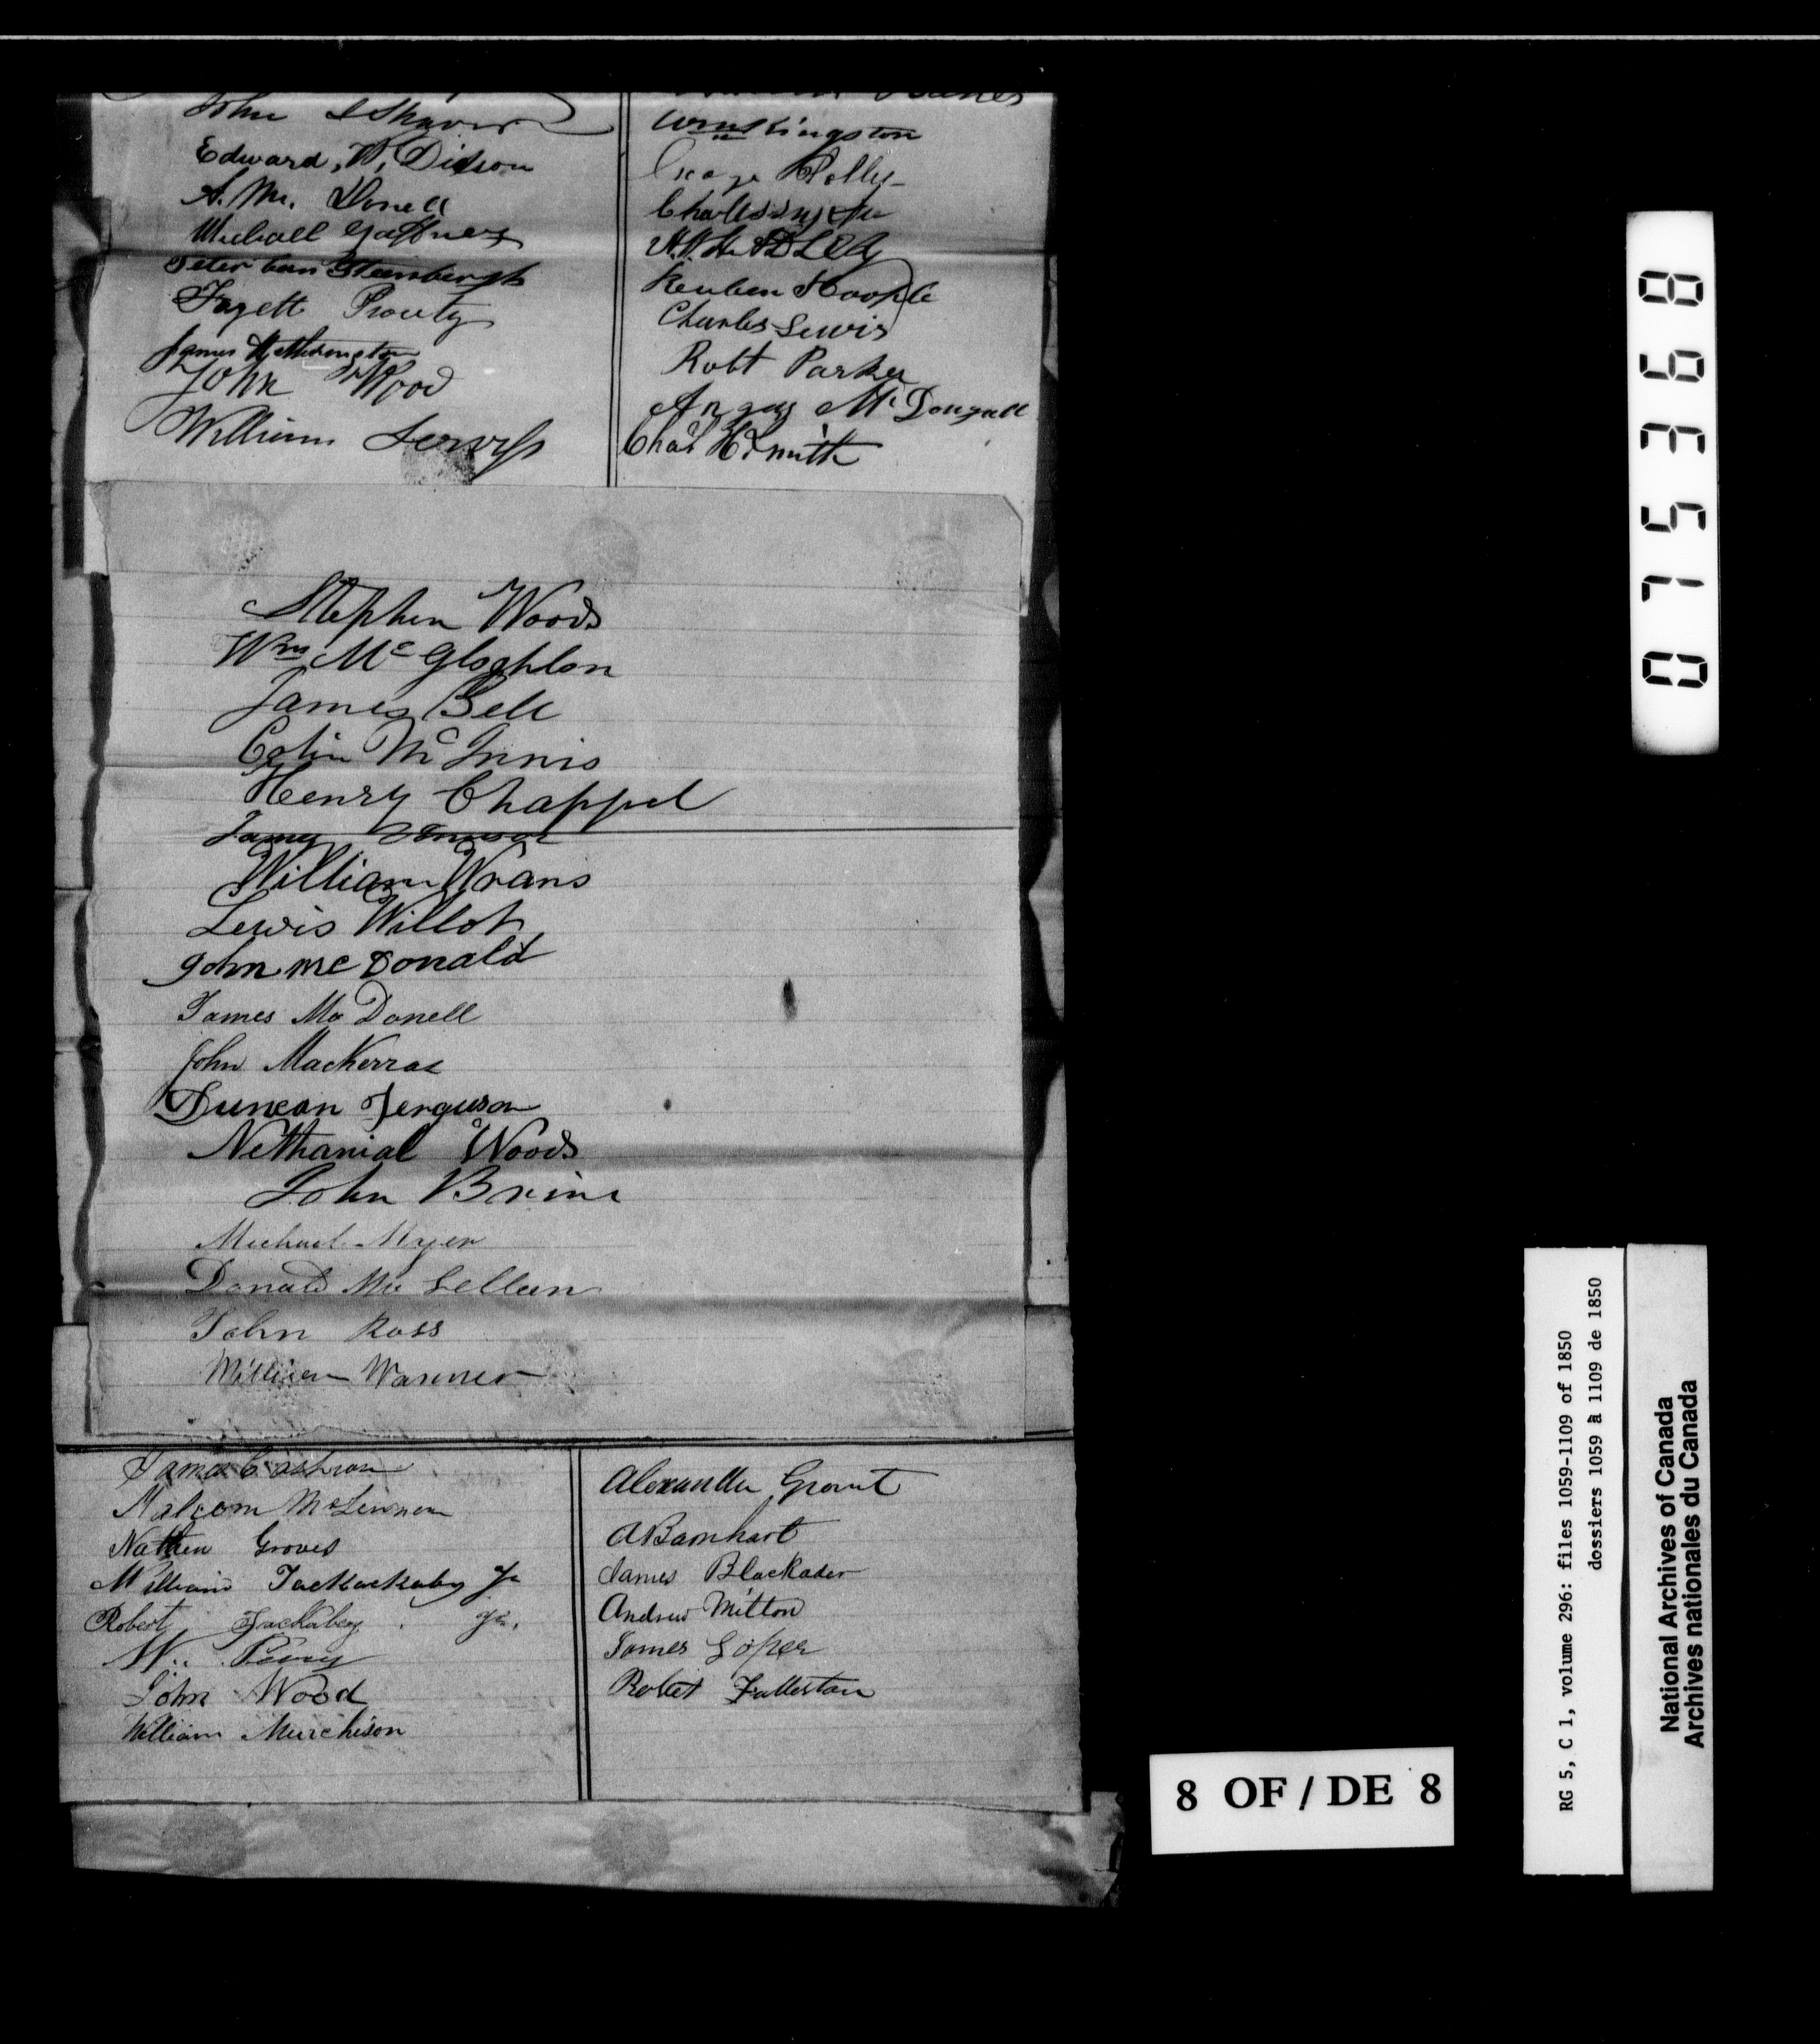 John Shaver
Edward, W, Dixson
A. Mc. Donell
Michael Gaffney
Peter van Steenbergh
Fayett Prouty
James Hetherington
John Wood
William Serviss
Wm Kingston
Polly
Reuben Hoople
Charles Lewis
Robt Parker
Angus McDougall
Chas H Smith
Stephen Woods
Wm McGloghlon
James Bell
Colin McInnis
Henry Chappel
James
William Wrans
Lewis Willot
John mc Donald
James Mc Donell
John MacKerras
Duncan Ferguson
Nethanial Woods
John Brine
Michael Myer
Donald Mc Lellan
John Ross
William Warner
James Cashion
Malcom McLennen
Nathen Groves
William Jackackaby Jr
Robert Jackabery . Jr.
Perry
John Wood
William Murchison
Alexander Grant
A Barnhart
James Blackader
Andrew Mitton
James Loper
Robert Fullerton
8 OF / DE 8
075368
RG 5, C 1, volume 296: files 1059-1109 of 1850
dossiers 1059 à 1109 de 1850
National Archives of Canada
Archives nationales du Canada